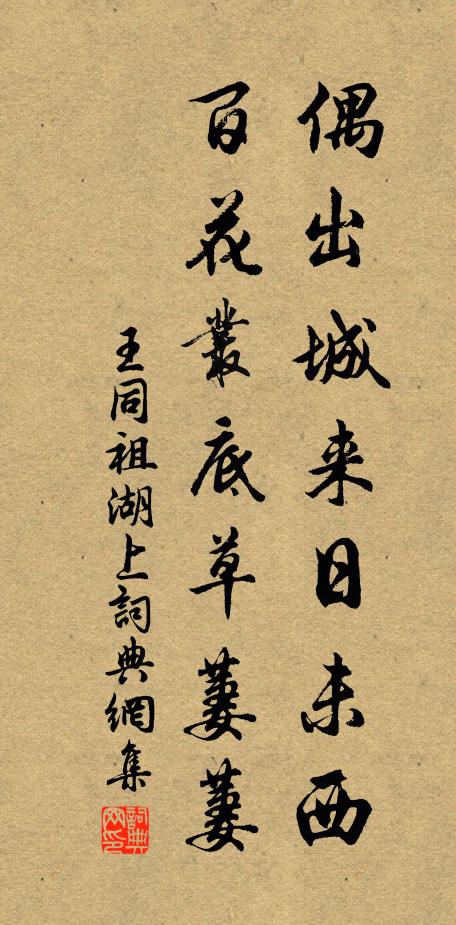 偶出城来日未西
百花叢底草萋萋
王同祖湖上詞典網集
詞典网印